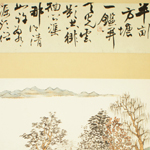 半畝
方塘
一鑑開
天光雲
影共徘
徊問渠
那得清
如許為